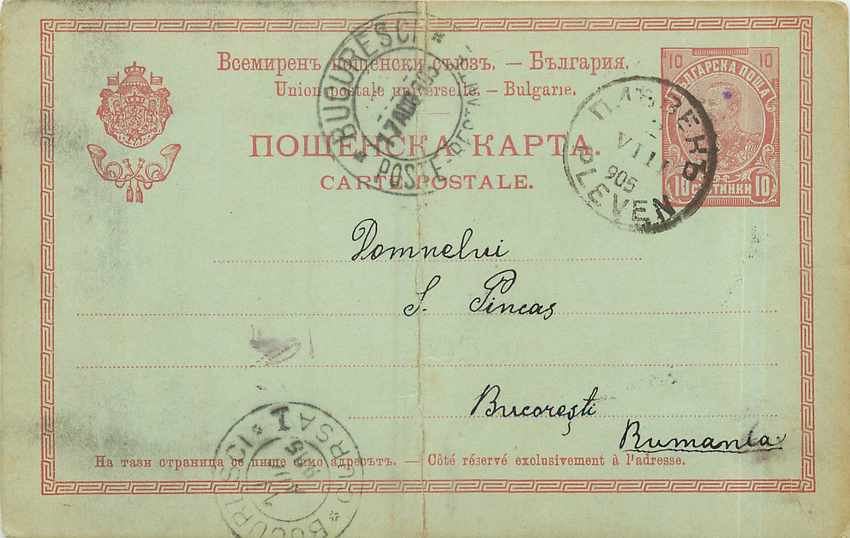 Всемиренъ пощенски съюзъ. — България.
Union postale universelle. — Bulgarie.
ПОЩЕНСКА КАРТА.
CARTE POSTALE.
10 10
БЪЛГАРСКА ПОЩА
10 СТОТИНКИ 10
BUCURESCI
17 AUG 905
POSTE-RESTANTE
ПЛѢВЕНЪ
VIII
905
PLEVEN
Domnelui
S. Pincas
Bucorești
Rumania
На тази страница се пише само адресътъ. — Côté réservé exclusivement à l'adresse.
BUCURESCI
BURSA I